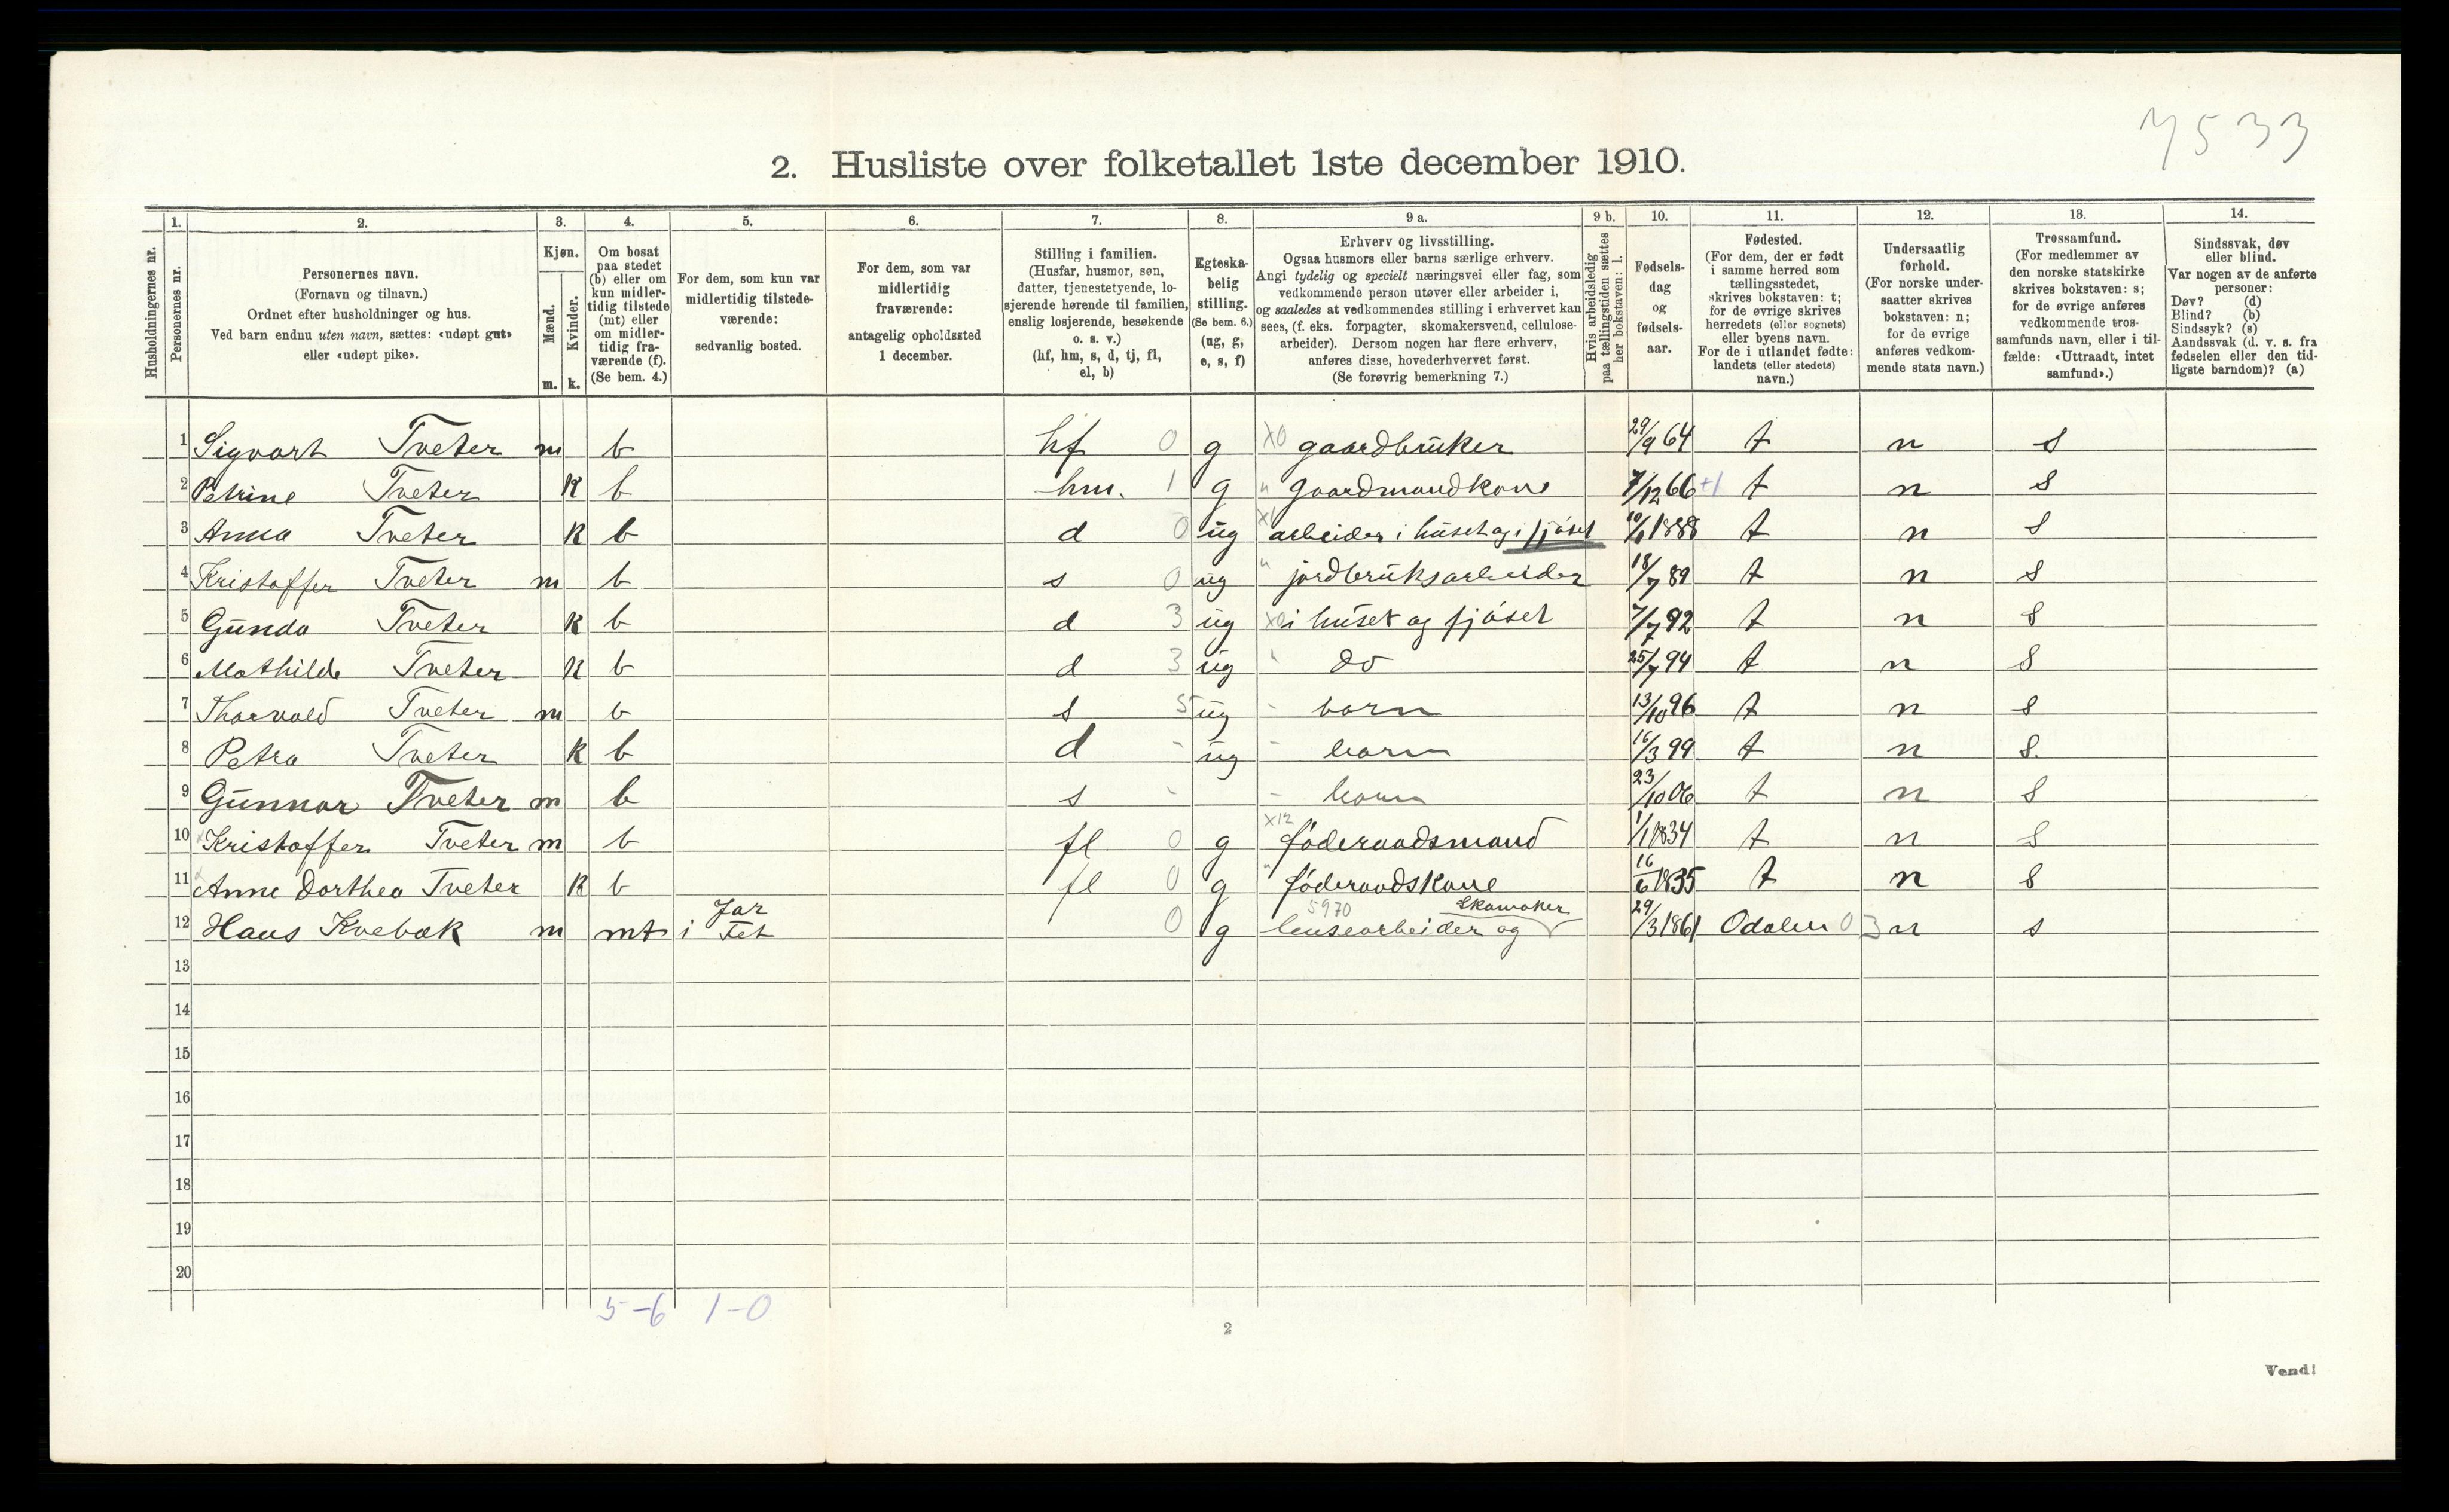 7533
2. Husliste over folketallet 1ste december 1910.
Husholdningernes nr.
1.
Personernes nr.
2.
Personernes navn.
(Fornavn og tilnavn.)
Ordnet efter husholdninger og hus.
Ved barn endnu uten navn, sættes: «udøpt gut»
eller «udøpt pike».
3.
Kjøn.
Mænd.
Kvinder.
m. k.
4.
Om bosat
paa stedet
(b) eller om
kun midler-
tidig tilstede
(mt) eller
om midler-
tidig fra-
værende (f).
(Se bem. 4.)
5.
For dem, som kun var
midlertidig tilstede-
værende:
sedvanlig bosted.
6.
For dem, som var
midlertidig
fraværende:
antagelig opholdssted
1 december.
7.
Stilling i familien.
(Husfar, husmor, søn,
datter, tjenestetyende, lo-
sjerende hørende til familien,
enslig losjerende, besøkende
o. s. v.)
(hf, hm, s, d, tj, fl,
el, b)
8.
Egteska-
belig
stilling.
(Se bem. 6.)
(ug, g,
e, s, f)
9 a.
Erhverv og livsstilling.
Ogsaa husmors eller barns særlige erhverv.
Angi tydelig og specielt næringsvei eller fag, som
vedkommende person utøver eller arbeider i,
og saaledes at vedkommendes stilling i erhvervet kan
sees, (f. eks. forpagter, skomakersvend, cellulose-
arbeider). Dersom nogen har flere erhverv,
anføres disse, hovederhvervet først.
(Se forøvrig bemerkning 7.)
9 b.
Hvis arbeidsledig
paa tællingstiden sættes
her bokstaven: l.
10.
Fødsels-
dag
og
fødsels-
aar.
11.
Fødested.
(For dem, der er født
i samme herred som
tællingsstedet,
skrives bokstaven: t;
for de øvrige skrives
herredets (eller sognets)
eller byens navn.
For de i utlandet fødte:
landets (eller stedets)
navn.)
12.
Undersaatlig
forhold.
(For norske under-
saatter skrives
bokstaven: n;
for de øvrige
anføres vedkom-
mende stats navn.)
13.
Trossamfund.
(For medlemmer av
den norske statskirke
skrives bokstaven: s;
for de øvrige anføres
vedkommende tros-
samfunds navn, eller i til-
fælde: «Uttraadt, intet
samfund».)
14.
Sindssvak, døv
eller blind.
Var nogen av de anførte
personer:
Døv? (d)
Blind? (b)
Sindssyk? (s)
Aandssvak (d. v. s. fra
fødselen eller den tid-
ligste barndom)? (a)
1 Sigvart Tveter m b hf 0 g X0 gaardbruker 29/9 64 t n s
2 Petrine Tveter k b hm. 1 g " gaardmandkone 7/12 66 +1 t n s
3 Anna Tveter k b d 0 ug X1 arbeider i huset og i fjøset 1888 t n s
4 Kristoffer Tveter m b s 0 ug " jordbruksarbeider 18/7 89 t n s
5 Gunda Tveter k b d 3 ug i huset og fjøset 7/7 92 t n s
6 Mathilde Tveter k b d 3 ug " do 25/7 94 t n s
7 Thorvald Tveter m b s 5 ug - barn 13/10 96 t n s
8 Petra Tveter k b d - ug - barn 16/3 99 t n s.
9 Gunnar Tveter m b s - - barn 23/10 06 t n s
10 x Kristoffer Tveter m b fl 0 g X12 føderaadsmand 1/1 1834 t n s
11 x Anne Dorthea Tveter k b fl 0 g " føderaadskone 16/6 1835 t n s
Jar 5970 Skomaker
12 Hans Kvebæk m mt i Fet 0 g lensearbeider og 29/3 1861 Odalen 03 n s
13
14
15
16
17
18
19
20
5-6 1-0
2
Vend!